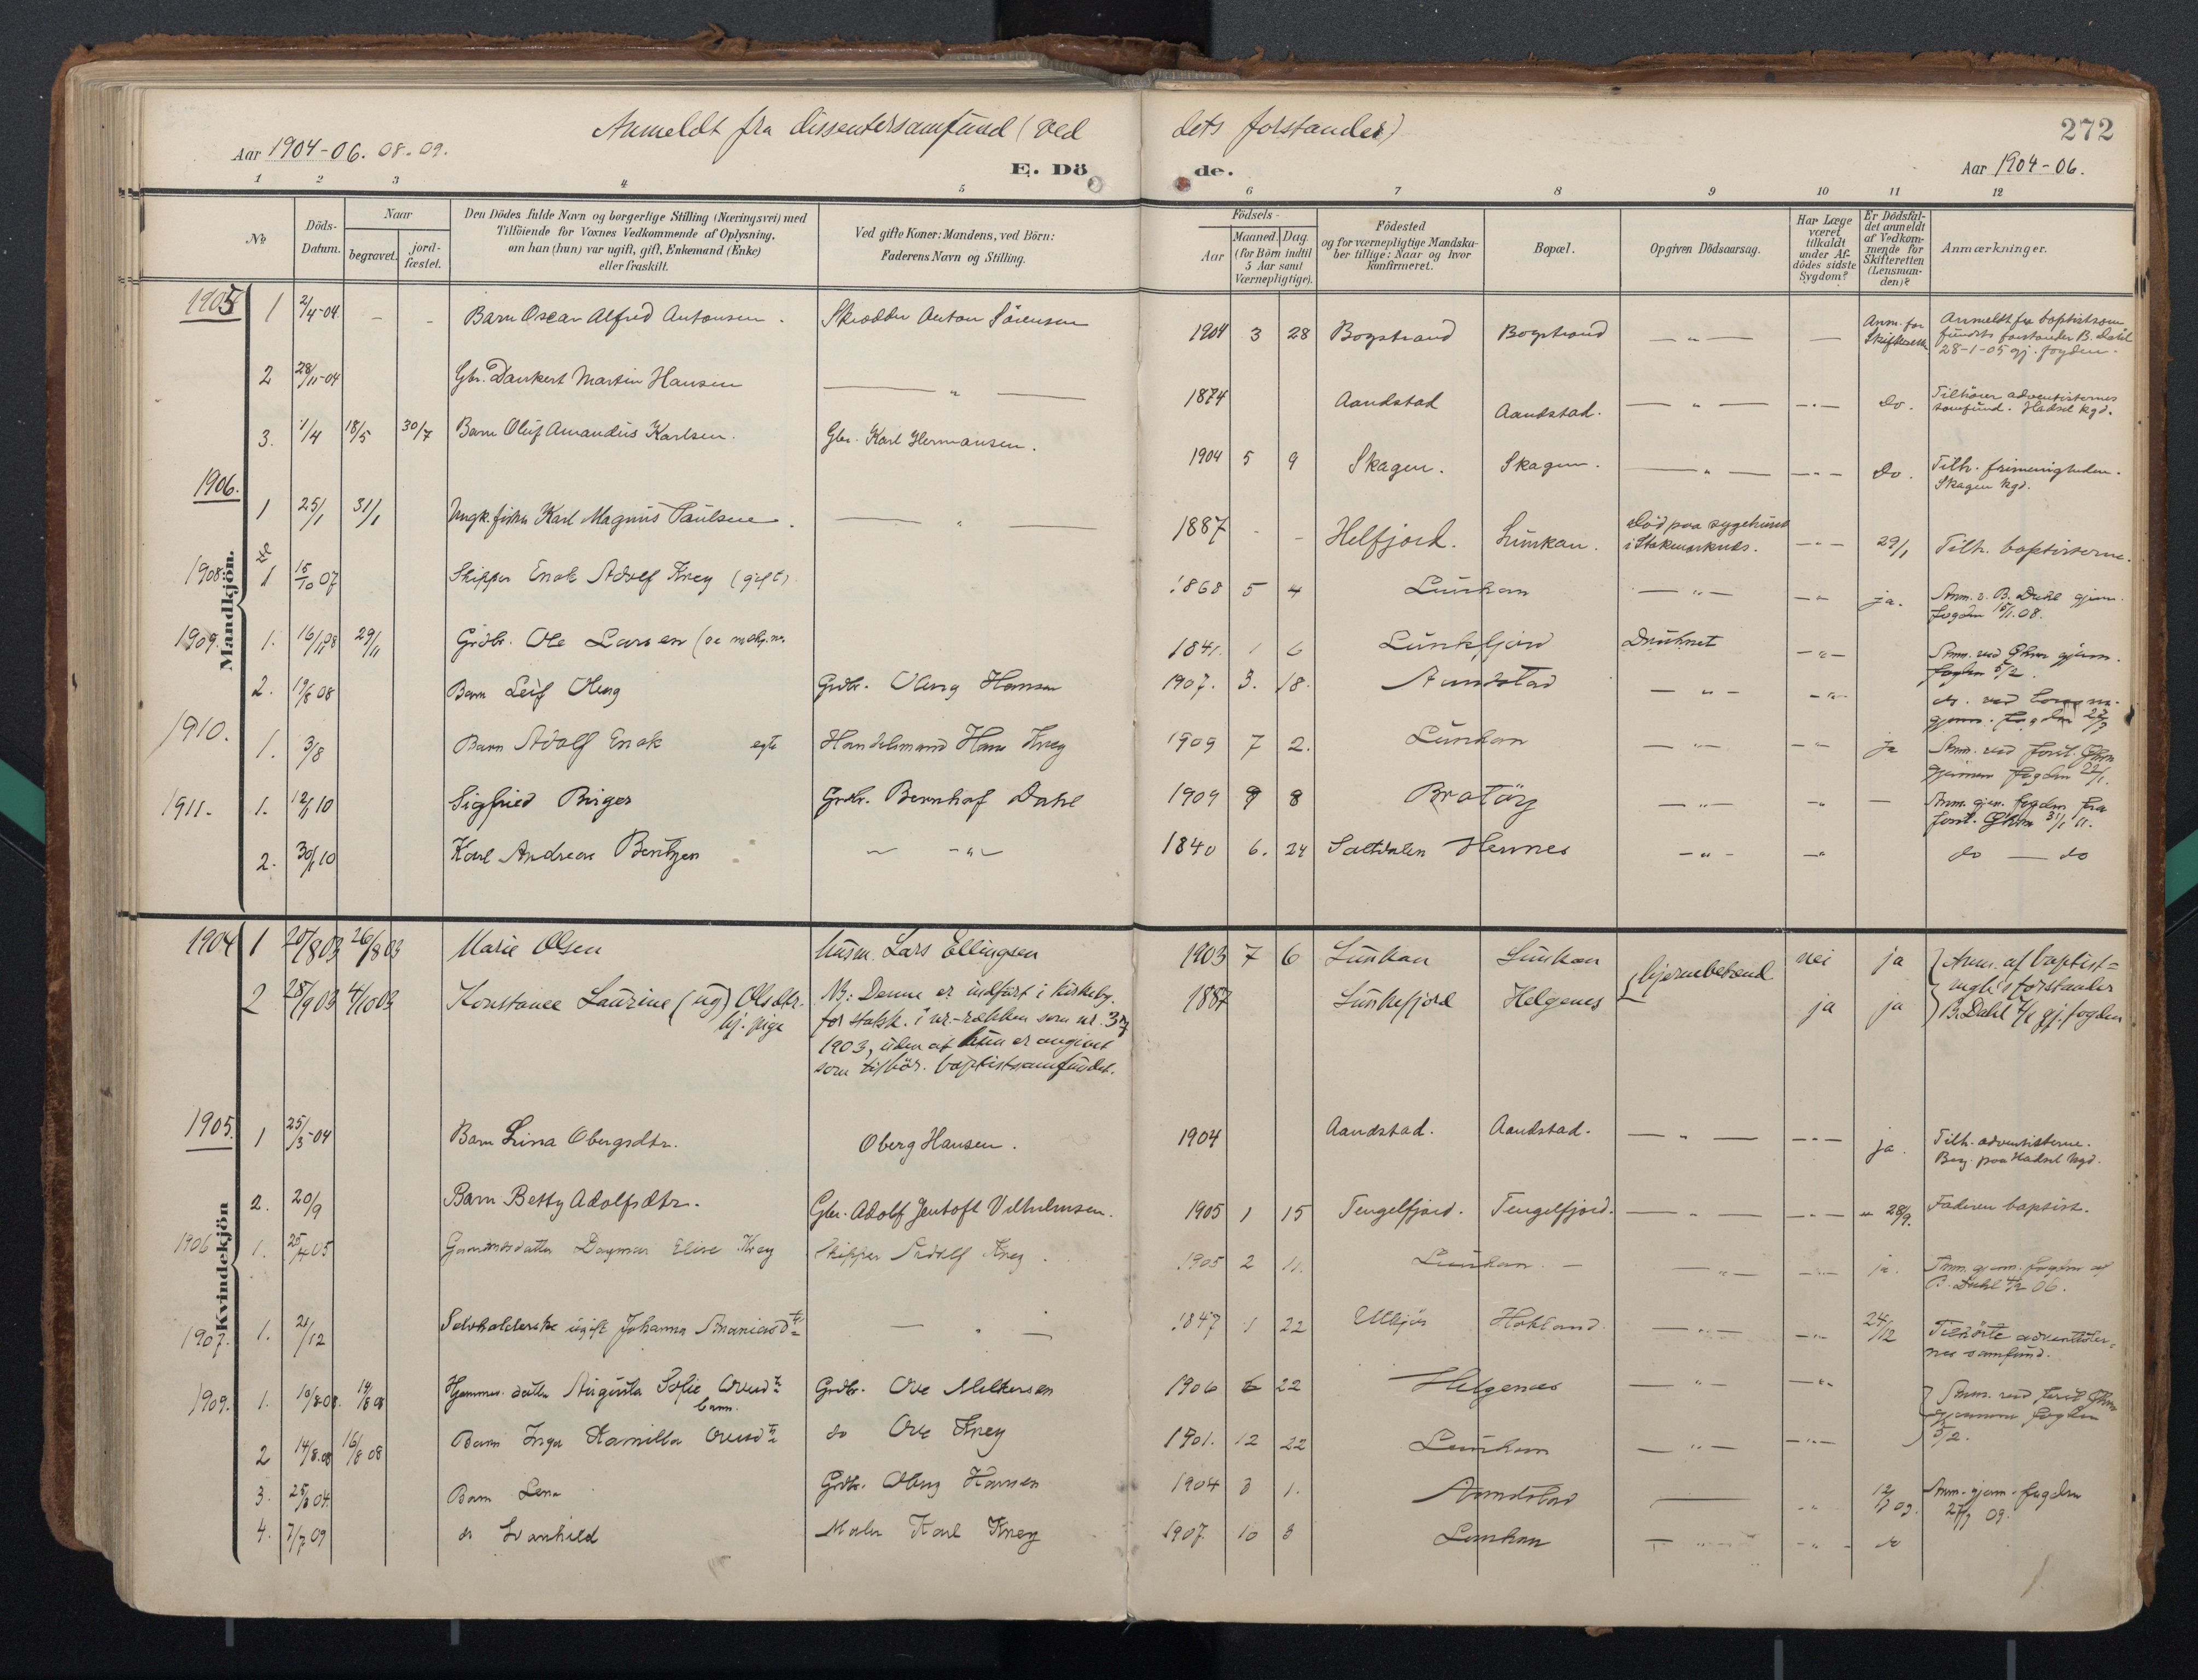 Anmeldt fra dissentersamfund (ved dets forstander)
272
Aar 1904-06. 08-09.
E. Döde.
Aar 1904-06.
1 2 3 4 5 6 7 8 9 10 11 12
No
Döds-Datum.
Naar
begravet.
jord-fæstet.
Den Dödes fulde Navn og borgerlige Stilling (Næringsvei) med
Tilföiende for Voxnes Vedkommende af Oplysning,
om han (hun) var ugift, gift, Enkemand (Enke)
eller fraskilt.
Ved gifte Koner: Mandens, ved Börn:
Faderens Navn og Stilling.
Födsels-
Aar
Maaned. Dag.
(for Börn indtil
5 Aar samt
Værnepligtige).
Födested
og for værnepligtige Mandska-
ber tillige: Naar og hvor
konfirmeret.
Bopæl.
Opgiven Dödsaarsag.
Har Læge
været
tilkaldt
under Af-
dödes sidste
Sygdom?
Er Dödsfal-
det anmeldt
af Vedkom-
mende for
Skifteretten
(Lensman-
den)?
Anmærkninger.
Mandkjön.
1905 1 2/4-04. - - Barn Oscar Alfred Antonsen. Skrædder Anton Sörensen 1904 3 28 Bogstrand Bogstrand — " — — Anm. for Skifteretten Anmeldt fra baptistsam
fundets forstander B. Dahl
28-1-05 gj. fogden.
2 28/11-04 Gbr. Dankert Martin Hansen — " — 1874 Aandstad Aandstad. — " — — " — do. Tilhörer adventisternes
samfund. Hadsel kgd.
3. 1/4 18/5 30/7 Barn Oluf Amandus Karlsen. Gbr. Karl Hermansen. 1904 5 9 Skagen. Skagen. — " — — " — do. Tilh. frimenigheden.
Skagen kgd.
1906. 1 25/1 31/1 Ungk. fisker Karl Magnus Paulsen. — " — 1887 - - Helfjord. Lunkan. Död paa sygehuset
i Stokmarknes. — " — 29/1 Tilh. baptisterne.
1908. 1 15/10 07 Skipper Enok Adolf Krey (gift) 1868 5 4 Lunkan — " — — " — ja. Anm. v. B. Dahl gjen.
fogden 15/1.08.
1909. 1. 16/11 08 29/11 Grdbr. Ole Larsen 1841. 1 6 Lunkfjord Druknet — " — Anm. ved gjen.
fogden 5/2.
2. 19/8 08 Barn Leif Oberg Grdbr. Oberg Hansen 1907. 3. 18. Aandstad — " — — " —
1910. 1. 3/8 Barn Adolf Enok egte Handelsmand Hans Krey 1909 7 2. Lunkan — " — — " — ja Anm. ved forst.
gjennem fogden 22/1.
1911. 1. 12/1 10 Sigfried Birger Grdbr. Bernhof Dahl 1909 9 8 Bratöy — " — — " — Anm. gjen. fogden fra
forst. 31/1 11.
2. 30/1 10 Karl Andreas Bentzen — " — 1840 6. 24 Saltdalen Hennes — " — — " do — do
Kvindekjön
1904 1 20/8 03 26/8 03 Marie Olsen Husm. Lars Ellingsen 1903 7 6 Lunkan Lunkan hjernebetænd. nei ja Anm. af baptist=
meghs forstander
B. Dahl 4/1 gj. fogden
2 28/9 03 4/10 03 Konstance Laurine (ug) Olsdtr.
tj. pige NB: Denne er indfört i kirkeby.
for stokk. i nr.-rækken som nr. 37
1903, uden at hun er angivet
som tilhör. baptistsamfundet. 1887 Lunkefjord Helgenes ja ja
1905. 1 25/3-04 Barn Lina Obergsdtr. Oberg Hansen. 1904 Aandstad. Aandstad. — " — — " — ja. Tilh. adventisterne.
Beg. paa Hadsel kgd.
2. 20/9 Barn Betty Adolfsdtr. Gbr. Adolf Jentoft Vilhelmsen. 1905 1 15 Tengelfjord. Tengelfjord. — " — — " — 28/9. Faderen baptist.
1906 1. 25/4 05 Gaardmandsdatter Dagmar Elise Krey Skipper Adolf Krey. 1905 2 11. Lunkan — " — — " — ja. Anm. gjen. fogden af
B. Dahl 4/2 06.
1907. 1. 21/12 Selvholderske ugift Johanna Ananiasdtr — " — 1847 1 22 Utkjös Hokland. — " — — " — 24/12 Tilhörte adventister-
nes samfund.
1909. 1. 10/8.08. 14/8 08 Hjemmev. datter Augusta Sofie Ovesdtr
barn. Grdbr. Ove Melkersen 1906 6 22 Helgenes — " — — " — Anm. ved forst.
gjennem fogden
5/2.
2 14/8.08 16/8 08 Barn Inga Kamilla Ovesdtr do Ove Krey 1901. 12 22 Lunkan — " — — " —
3. 25/3 04. Barn Lena Grdbr. Oberg Hansen 1904 3 1. Aandstad — " 12/7 09. Anm. gjen. fogden
27/7 09.
4. 7/7 09 do Svanhild Maler Karl Krey 1907. 10 3 Lunkan — " — — " — do